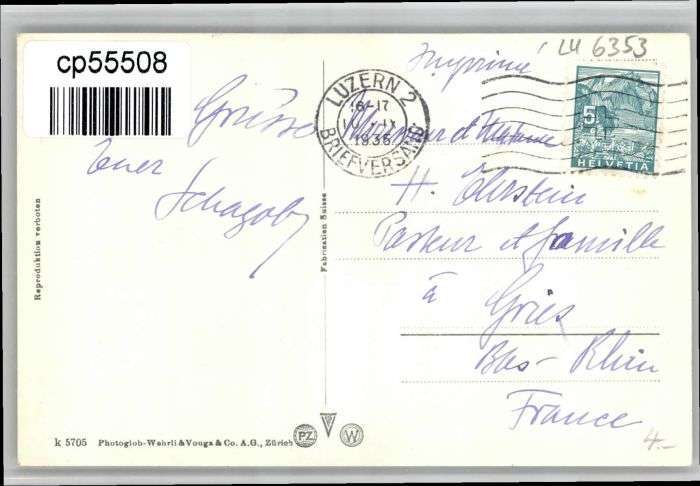 cp55508
Imprimé
LU 6353
LUZERN 2
16-17
IX
1935
BRIEFVERSAND
5
HELVETIA
Grüsse
Euer
Monsieur et Madame
H.
Pasteur et famille
à
Gries
Bas-Rhin
France
4.-
Reproduktion verboten
Fabrication Suisse
k 5705 Photoglob-Wehrli & Vouga & Co. A.G., Zürich
PZ
W